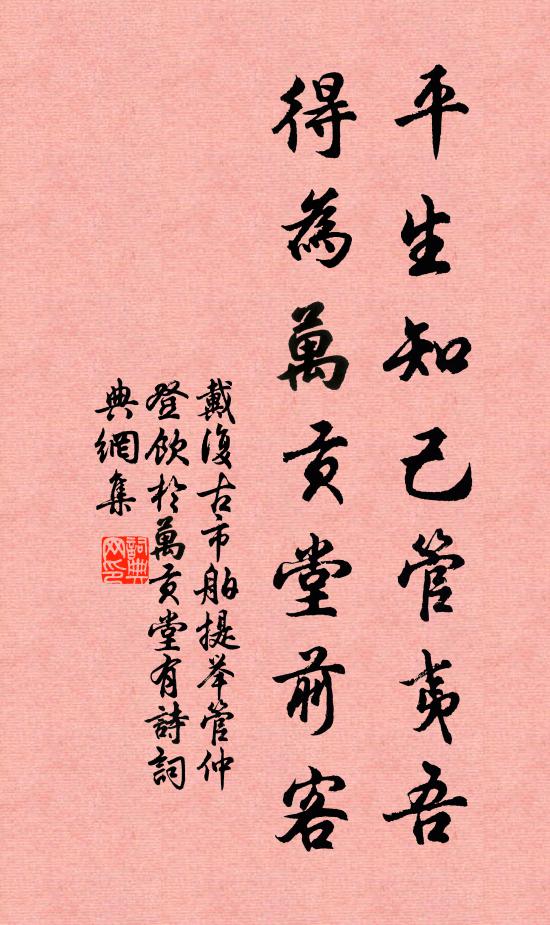 平生知己管夷吾
得為萬貢堂前客
戴復古市舶提举管仲
登飲於萬貢堂有詩詞
典網集
詞典網印